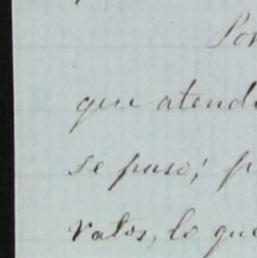 Por
que atend
se puso; p
ratos, lo que